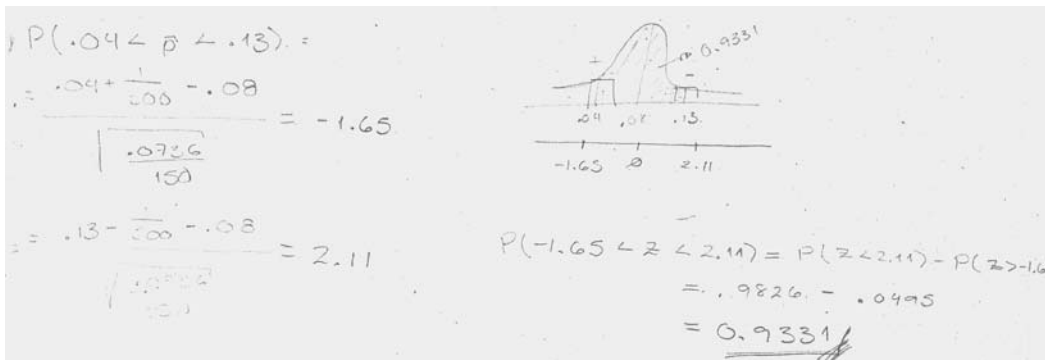 P(.04 < p̄ < .13) =
= .04 + 1/300 - .08 / √(.0736/150) = -1.65
= .13 - 1/300 - .08 / √(.0736/150) = 2.11
+ -
0.9331
.04 .08 .13
-1.65 0 2.11
P(-1.65 < z < 2.11) = P(z<2.11) - P(z>-1.6
= .9826 - .0495
= 0.9331